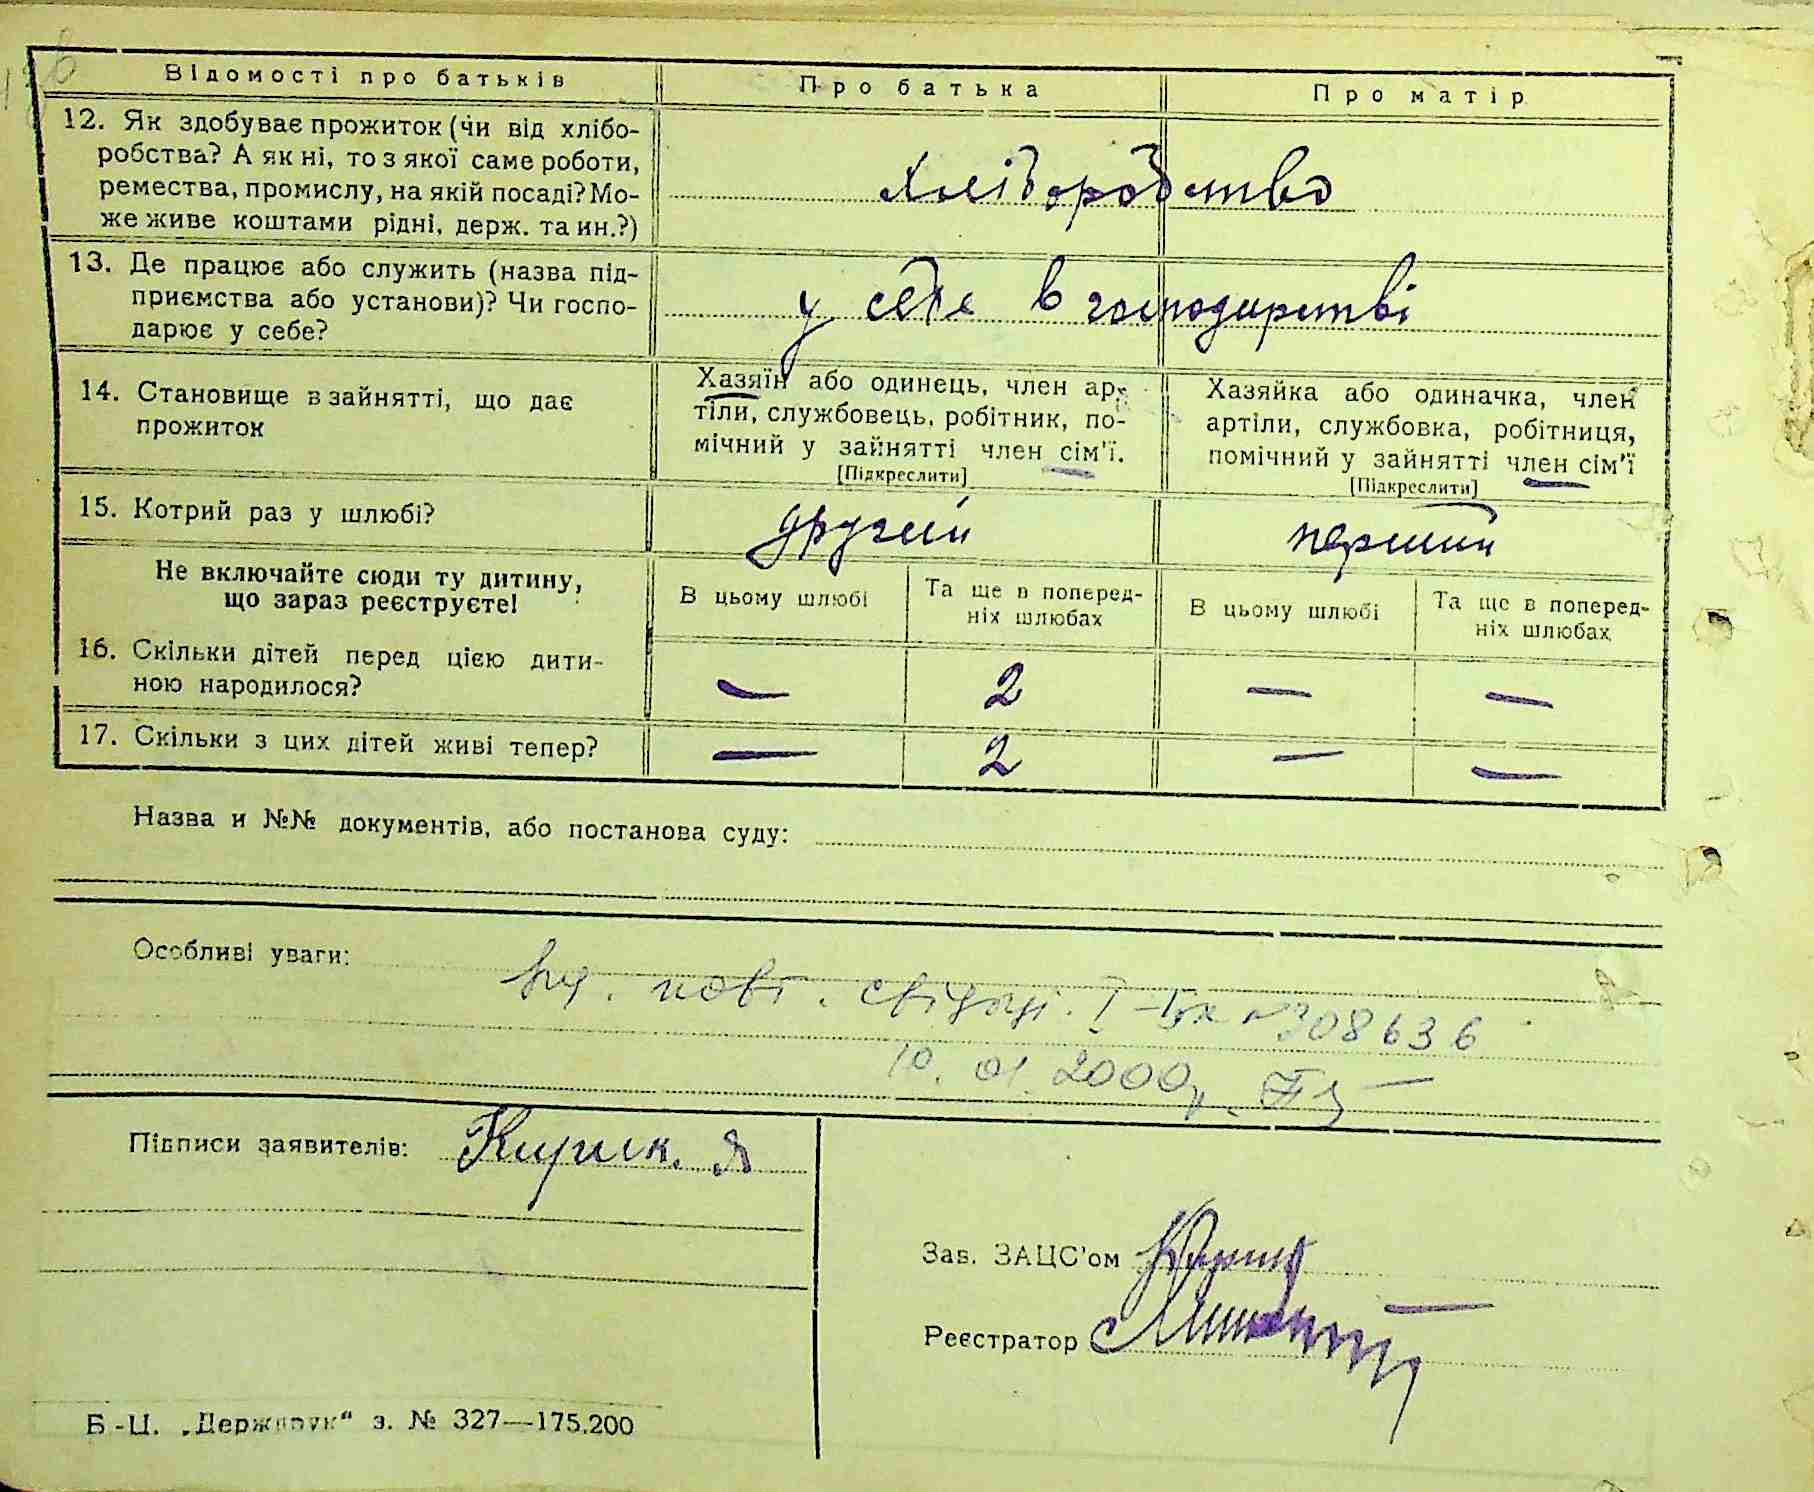 Відомості про батьків
Про батька
Про матір
12. Як здобуває прожиток (чи від хлібо-
робства? А як ні, то з якої саме роботи,
ремества, промислу, на якій посаді? Мо-
же живе коштами рідні, держ. та ин.?)
хліборобство
13. Де працює або служить (назва під-
приємства або установи)? Чи госпо-
дарює у себе?
у себе в господарстві
14. Становище в зайнятті, що дає
прожиток
Хазяїн або одинець, член ар-
тіли, службовець, робітник, по-
мічний у зайнятті член сім'ї.
[Підкреслити]
Хазяйка або одиначка, член
артіли, службовка, робітниця,
помічний у зайнятті член сім'ї
[Підкреслити]
15. Котрий раз у шлюбі?
другий
перший
Не включайте сюди ту дитину,
що зараз реєструєте!
В цьому шлюбі
Та ще в поперед-
ніх шлюбах
В цьому шлюбі
Та ще в поперед-
ніх шлюбах
16. Скільки дітей перед цією дити-
ною народилося?
— 2 — —
17. Скільки з цих дітей живі тепер?
— 2 — —
Назва и №№ документів, або постанова суду:
Особливі уваги:
повт. свідоц. І-
308636
10. 01. 2000р.
Підписи заявителів: Кирик. Я
Зав. ЗАЦС'ом
Реєстратор
Б-Ц. „Держдрук“ з. № 327—175.200